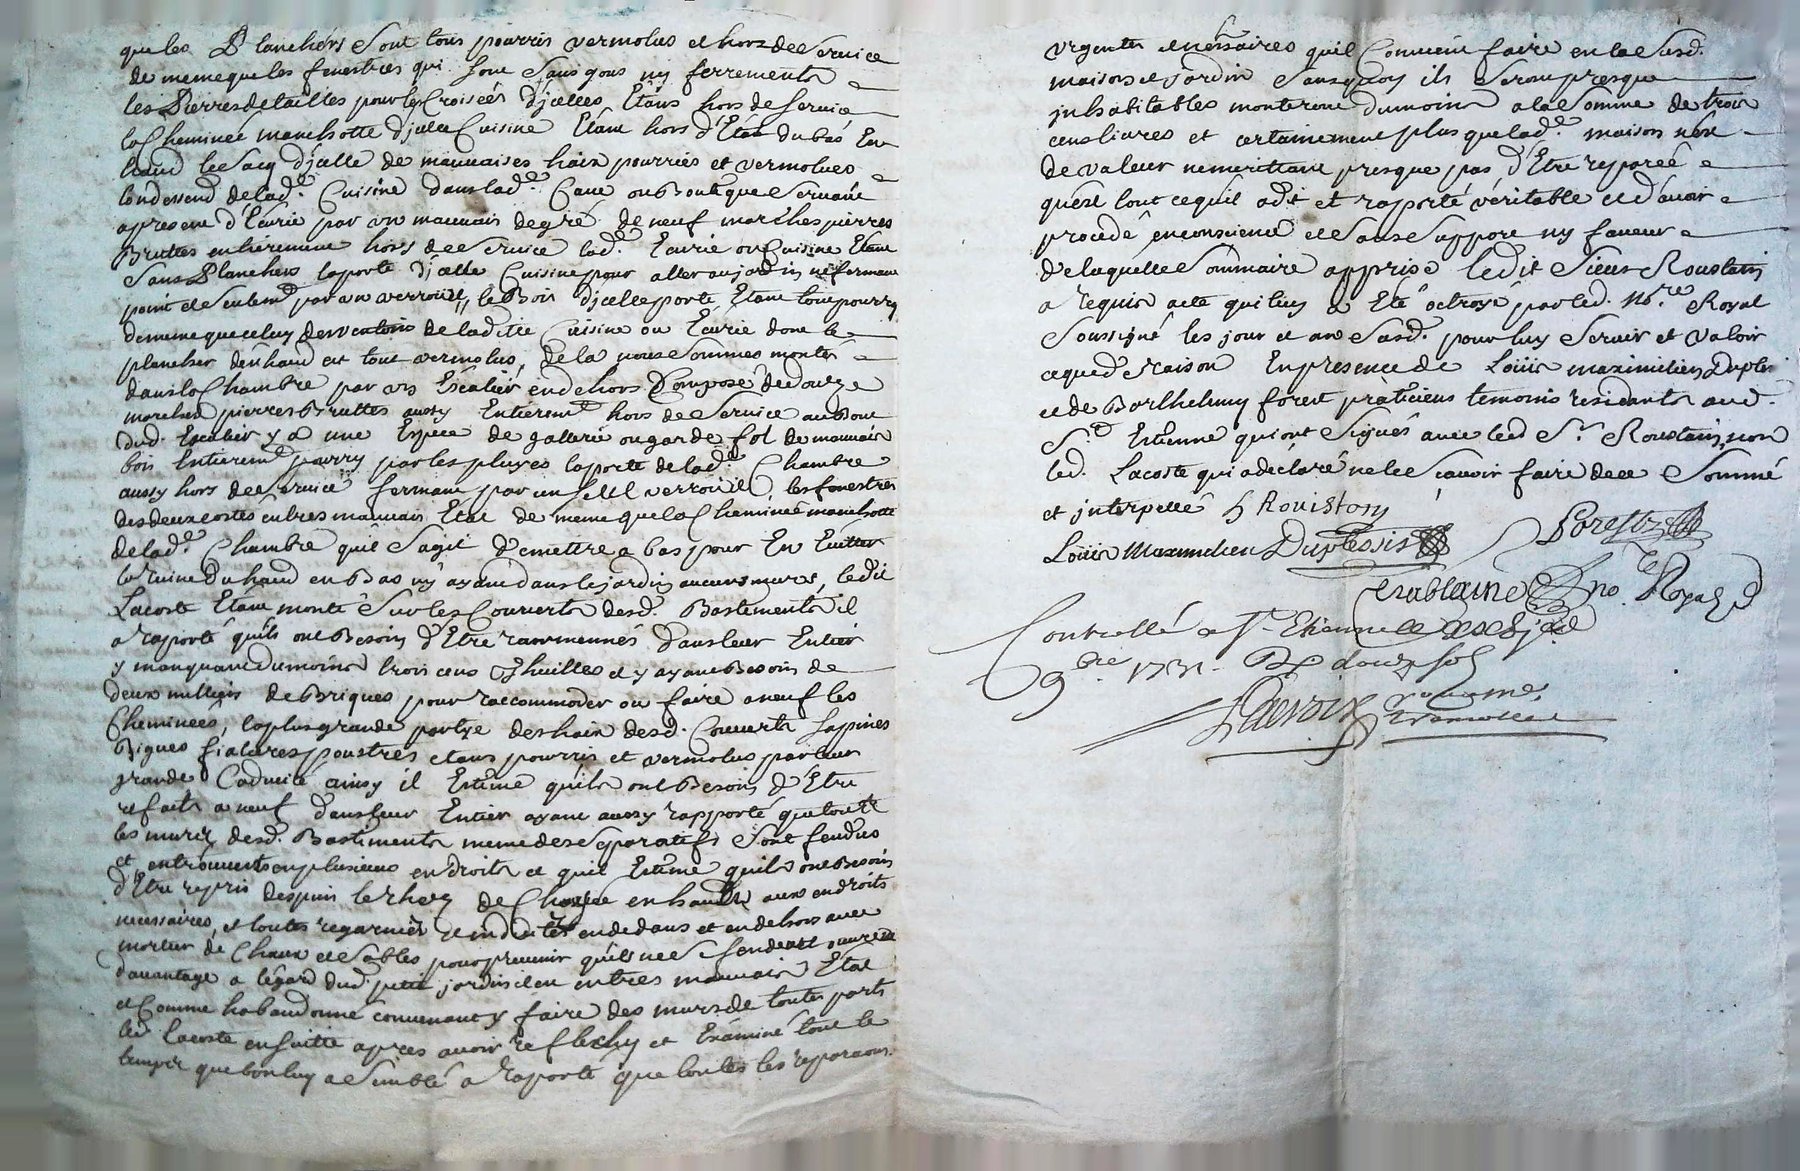 que les Planchers Sont tous pourris vermolus et hors de Service
de meme que les fenestres qui sont Sans gons ny ferrements
les Pierres de tailles pour les Croisées d'jcelles Etans hors de Service
la Cheminée manchotte d'jcelle Cuisine Etant hors d'Etat du bas En
haud le Sacq d'jcelle de mauvaises haix pourries et vermolues
lon dessend de lad.e Cuisine dans lad.e Cave ou Boutique Servant
apresent d'Ecurie par un mauvais degré de neuf marches pierres
Bruttes entierement hors de Service lad.e Ecurie ou Cuisine Etant
Sans Planchers la porte d'jcelle Cuisine pour aller au jardin ne fermant
point et Seulem.t par un verrouil, le Bois d'jcelle porte Etant tout pourry
de meme que celuy des ventaux de laditte Cuisine ou Ecurie dont le
plancher d'en haud est tout vermolus, de la nous Sommes montés
dans la Chambre par un Escalier en dehors Composé de douze
marches pierres Bruttes aussy Entierem.t hors de Service au Bout
dud. Escalier y a une Espece de gallerie ou garde fol de mauvais
bois Entierem.t pourry par les pluyes la porte de lad.e Chambre
aussy hors de Service fermant par un Seul verrouil, les fenestres
des deux costés en tres mauvais Etat de meme que la Cheminée manchotte
de lad.e Chambre qu'il S'agit d'emettre a bas pour En Eviter
la ruine du haud en Bas n'y ayant dans le jardin aucuns murs, ledit
Lacoste Etant monté Sur les Couverts desd. Bastiments il
a raporté qu'ils ont Besoin d'Etre rammennés dans leur Entier
y manquant du moins trois cens thuilles et y ayant Besoin de
deux milliers de Briques pour raccommoder ou faire a neuf les
Cheminées, la plus grande partye des haix desd. Couverts Sappines
Bigues fialures poustres etans pourris et vermolus par leur
grande Caducité ainsy il Estime qu'ils ont Besoin d'Etre
refaits a neuf dans leur Entier ayant aussy rapporté que toutes
les murs desd. Bastiments meme des Separatifs Sont fendus
et entrouverts en plusieurs endroits et quil Estime quils ont Besoin
d'Etre repris despuis le rhez de Chossée en hauts aux endroits
necessaires, et toutes regarnies et enduites en dedans et en dehors avec
mortier de Chaux et Sables pour prevenir qu'ils ne Se fendent
d'avantage a l'égard dud. petit jardin il en en tres mauvais Etat
et Comme habandonné convenant y faire des murs de toutes parts
led. Lacoste en Suitte apres avoir reflechy et Examiné tout le
temps que bon luy a Semblé a raporté que toutes les reparaons
urgentes et necessaires quil Convient faire en la Susd.
maison et jardin Sans quoy ils Seront presque
jnhabitables monteront du moins a la Somme de trois
cens livres et certainement plus que lad.e maison n'est
de valeur ne merittant presque pas d'Etre reparée
qu'est tout ce quil a dit et raporté véritable et d'avoir
procedé en consience et Sans Support ny faveur
de laquelle Sommaire apprise ledit Sieur Roustain
a requis acte qui luy a Eté octroyé par led. No.re Royal
Soussigné les jour et an Susd. pour luy Servir et valoir
ce que de raison En presence de Loüis maximilien Duplessis
et de Barthelemy forest praticiens temoins residants aud.
S.t Estienne qui ont Signés avec led S.r Roustain, non
led. Lacoste qui a declaré ne le Scavoir faire de ce Sommé
et jnterpellé
Loüis Maximilien Duplessis
Forest
no.re Royal
Controllé a St Etienne le
9bre 1731. douze Sols